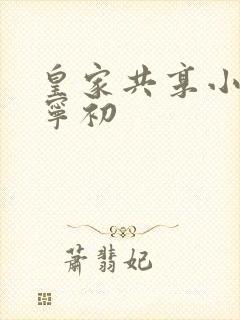 皇家共享小
寧初
蕭翡妃